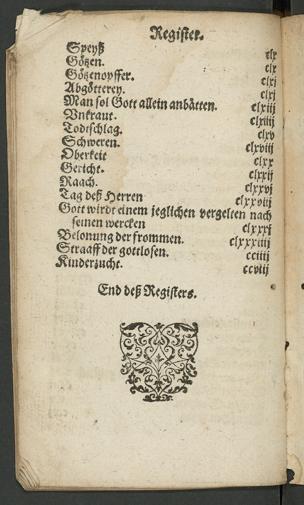 Register.
Speyß clx
Götzen. clx
Götzenopffer. clxi
Abgötterey. clxi
Man sol Gott allein anbätten. clxiij
Vnkraut. clxiiij
Todtschlag. clxv
Schweren. clxviij
Oberkeit clxx
Gericht. clxxij
Raach. clxxvj
Tag deß Herren clxxviij
Gott wirdt einem jeglichen vergelten nach
seinen wercken clxxxj
Belonung der frommen. clxxxiiij
Straaff der gottlosen. cciiij
Kinderzucht. ccvij
End deß Registers.